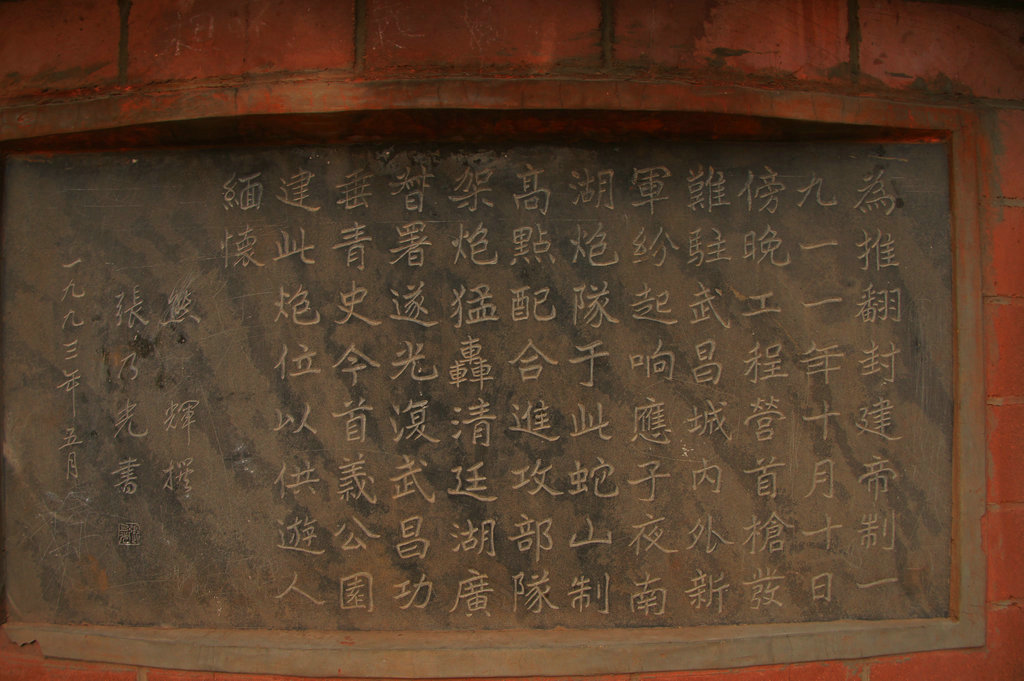 為推翻封建帝制一
九一一年十月十日
傍晚工程營首槍發
難駐武昌城內外新
軍紛起响應子夜南
湖炮隊于此蛇山制
高點配合進攻部隊
架炮猛轟清廷湖廣
督署遂光復武昌功
垂青史今首義公園
建此炮位以供遊人
緬懷
熊輝撰
張乃光書
一九九三年五月